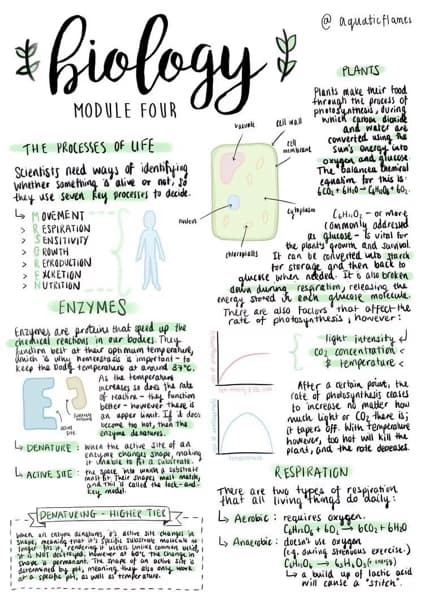 @ aquaticflames
biology
MODULE FOUR
THE PROCESSES OF LIFE
Scientists need ways of identifying
whether something is alive or not, so
they use seven key processes to decide.
↳ MOVEMENT
> RESPIRATION
> SENSITIVITY
> GROWTH
> REPRODUCTION
> EXCRETION
> NUTRITION
ENZYMES
Enzymes are proteins that speed up the
chemical reactions in our bodies. They
function best at their optimum temperature,
which is why homeostasis is important - to
keep the body temperature at around 37°C.
As the temperature
increases so does the rate
of reaction - they function
better - however there is
an upper limit. If it does
become too hot, then the
enzyme denatures.
ACTIVE
SITE
↳ DENATURE: when the active site of an
enzyme changes shape, making
it unable to fit a substrate.
↳ ACTIVE SITE: the space into which a substrate
must fit. Their shapes must match,
and this is called the lock-and-
key model.
DENATURING - HIGHER TIER
When an enzyme denatures, it's active site changes in
shape, meaning that it's specific substrate molecule no
longer fits it, rendering it useless. Unlike common belief,
it is not destroyed, however at 60°C, the change in
shape is permanent. The shape of an active site is
determined by pH, meaning they also only work
at a specific pH, as well as temperature.
vacuole
cell wall
cell
membrane
nucleus
cytoplasm
chloroplasts
PLANTS
Plants make their food
through the process of
photosynthesis, during
which carbon dioxide
and water are
converted using the
sun's energy into
oxygen and glucose.
The balanced chemical
equation for this is:
6CO₂ + 6H₂O → C₆H₁₂O₆ + 6O₂.
C₆H₁₂O₆ - or more
commonly addressed
as glucose - is vital for
the plants growth and survival.
It can be converted into starch
for storage and then back to
glucose when needed. It is also broken
down during respiration, releasing the
energy stored in each glucose molecule.
There are also factors that affect the
rate of photosynthesis, however:
light intensity
CO₂ concentration
& temperature
After a certain point, the
rate of photosynthesis ceases
to increase no matter how
much light or CO₂ there is;
it tapers off. With temperature
however, too hot will kill the
plant, and the rate decreases.
RESPIRATION
There are two types of respiration
that all living things do daily:
↳ Aerobic: requires oxygen.
C₆H₁₂O₆ + 6O₂ → 6CO₂ + 6H₂O
↳ Anaerobic: doesn't use oxygen
(e.g. during strenuous exercise.)
↳ a build up of lactic acid
will cause a "stitch".